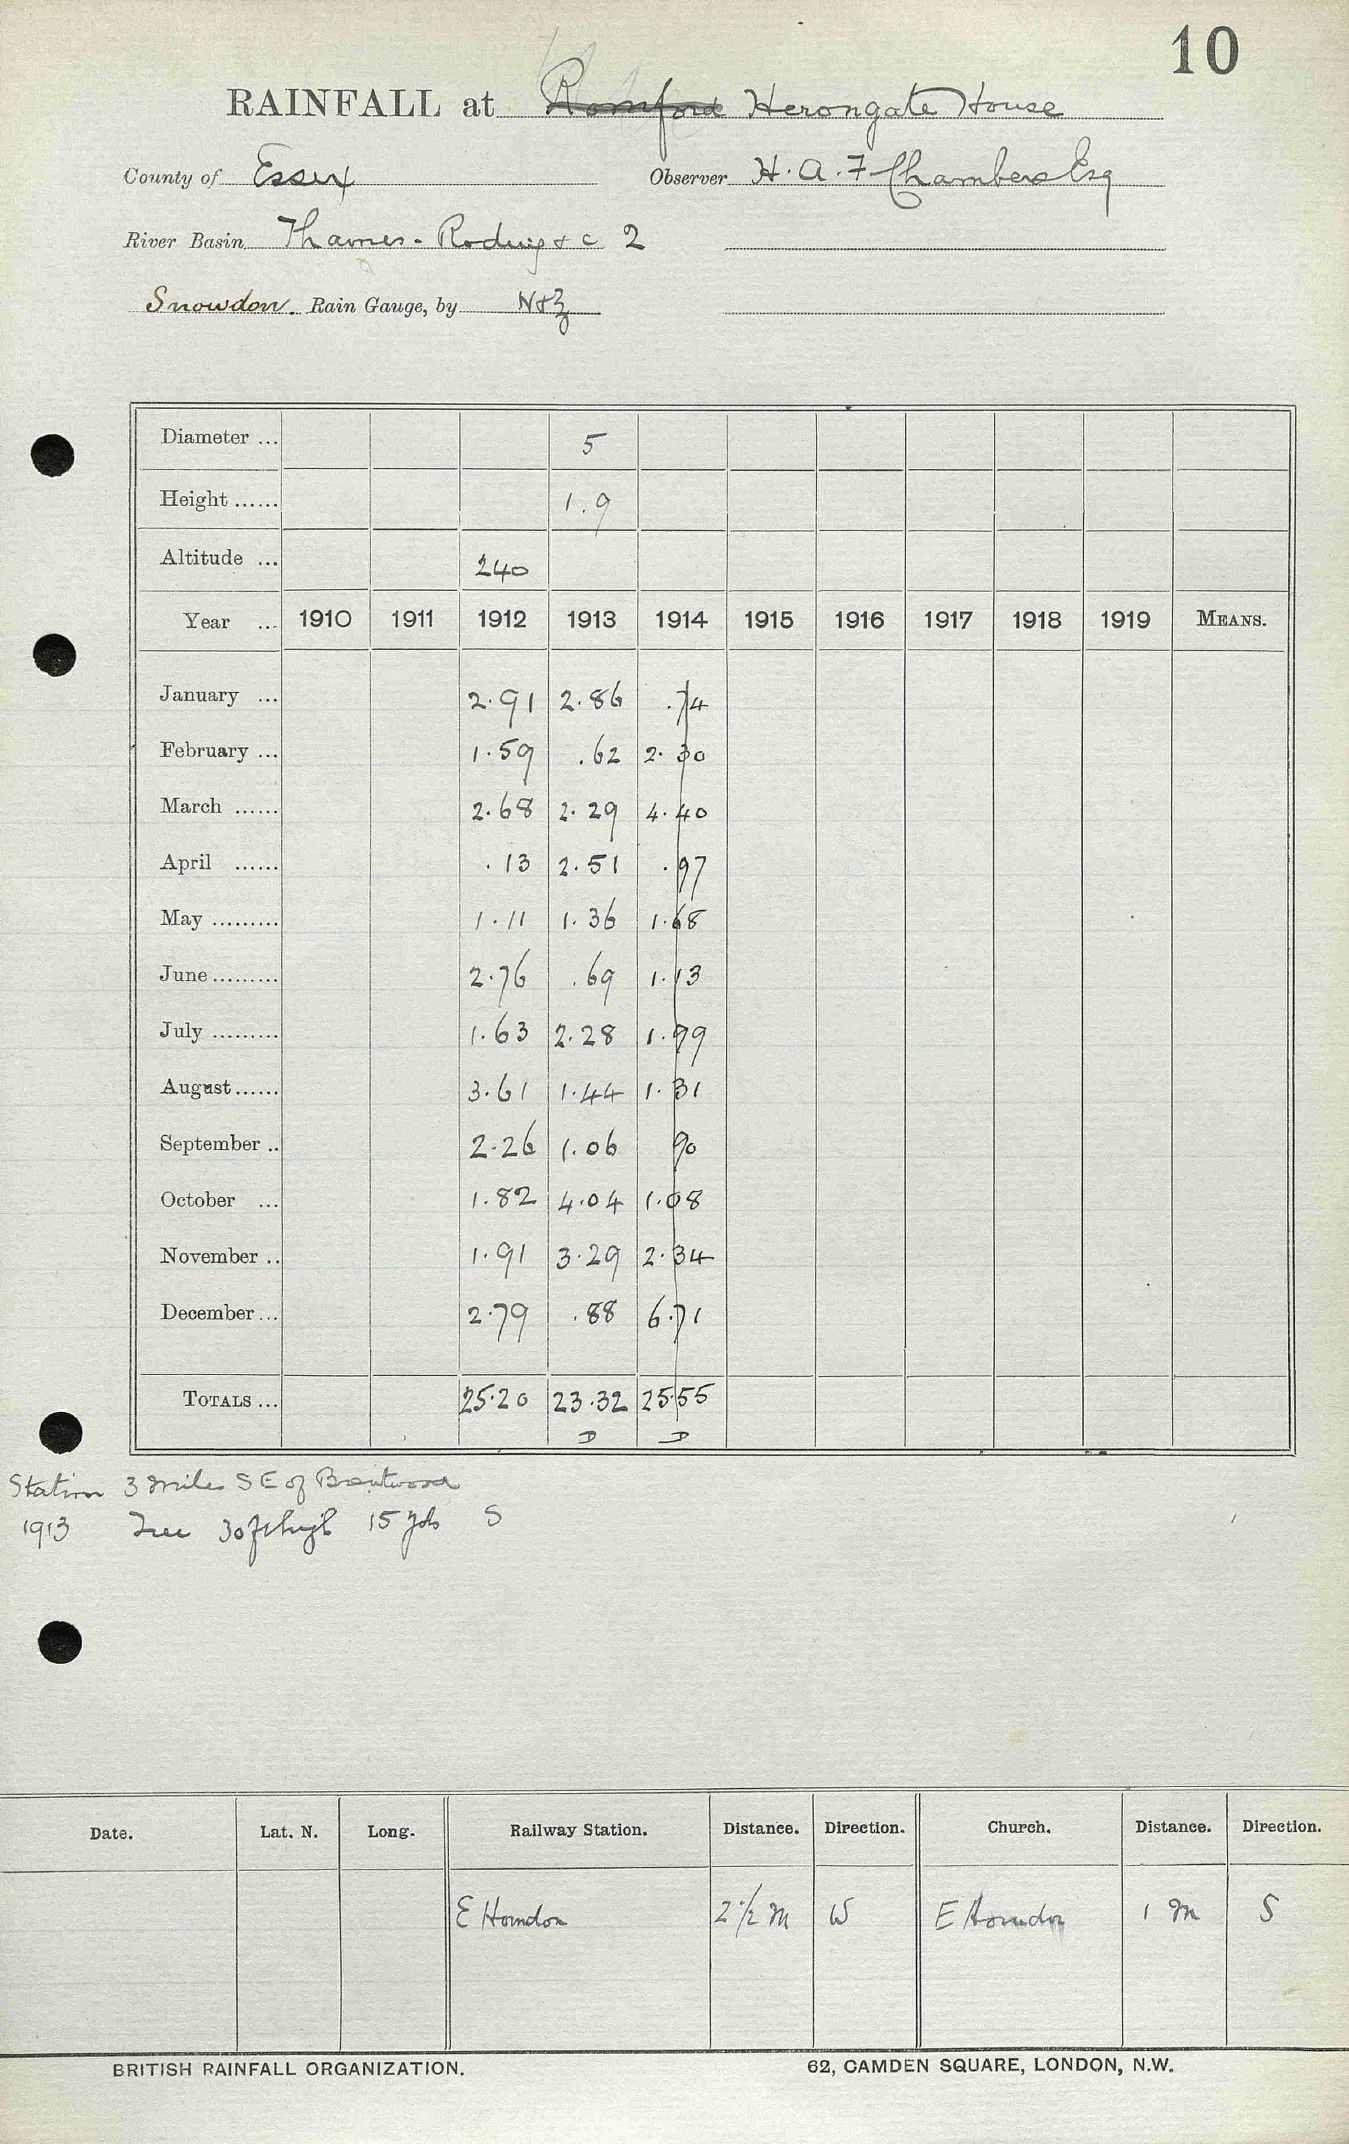 10
RAINFALL at Romford Herongate House
County of Essex Observer H. A. F Chambers Esq
River Basin Thames - Roding &c 2
Snowdon. Rain Gauge, by N&Z
Diameter ... 5
Height ...... 1.9
Altitude ... 240
Year ... 1910 1911 1912 1913 1914 1915 1916 1917 1918 1919 MEANS.
January ... 2.91 2.86 .74
February ... 1.59 .62 2.30
March ...... 2.68 2.29 4.40
April ...... .13 2.51 .97
May ......... 1.11 1.36 1.68
June ......... 2.76 .69 1.13
July ......... 1.63 2.28 1.99
August ...... 3.61 1.44 1.31
September .. 2.26 1.06 90
October ... 1.82 4.04 1.08
November .. 1.91 3.29 2.34
December ... 2.79 .88 6.71
TOTALS ... 25.20 23.32 25.55
D D
Station 3 miles SE of Brentwood
1913 Tree 30 ft high 15 yds S
Date. Lat. N. Long. Railway Station. Distance. Direction. Church. Distance. Direction.
E Horndon 2 1/2 m W E Horndon 1 m S
BRITISH RAINFALL ORGANIZATION. 62, CAMDEN SQUARE, LONDON, N.W.